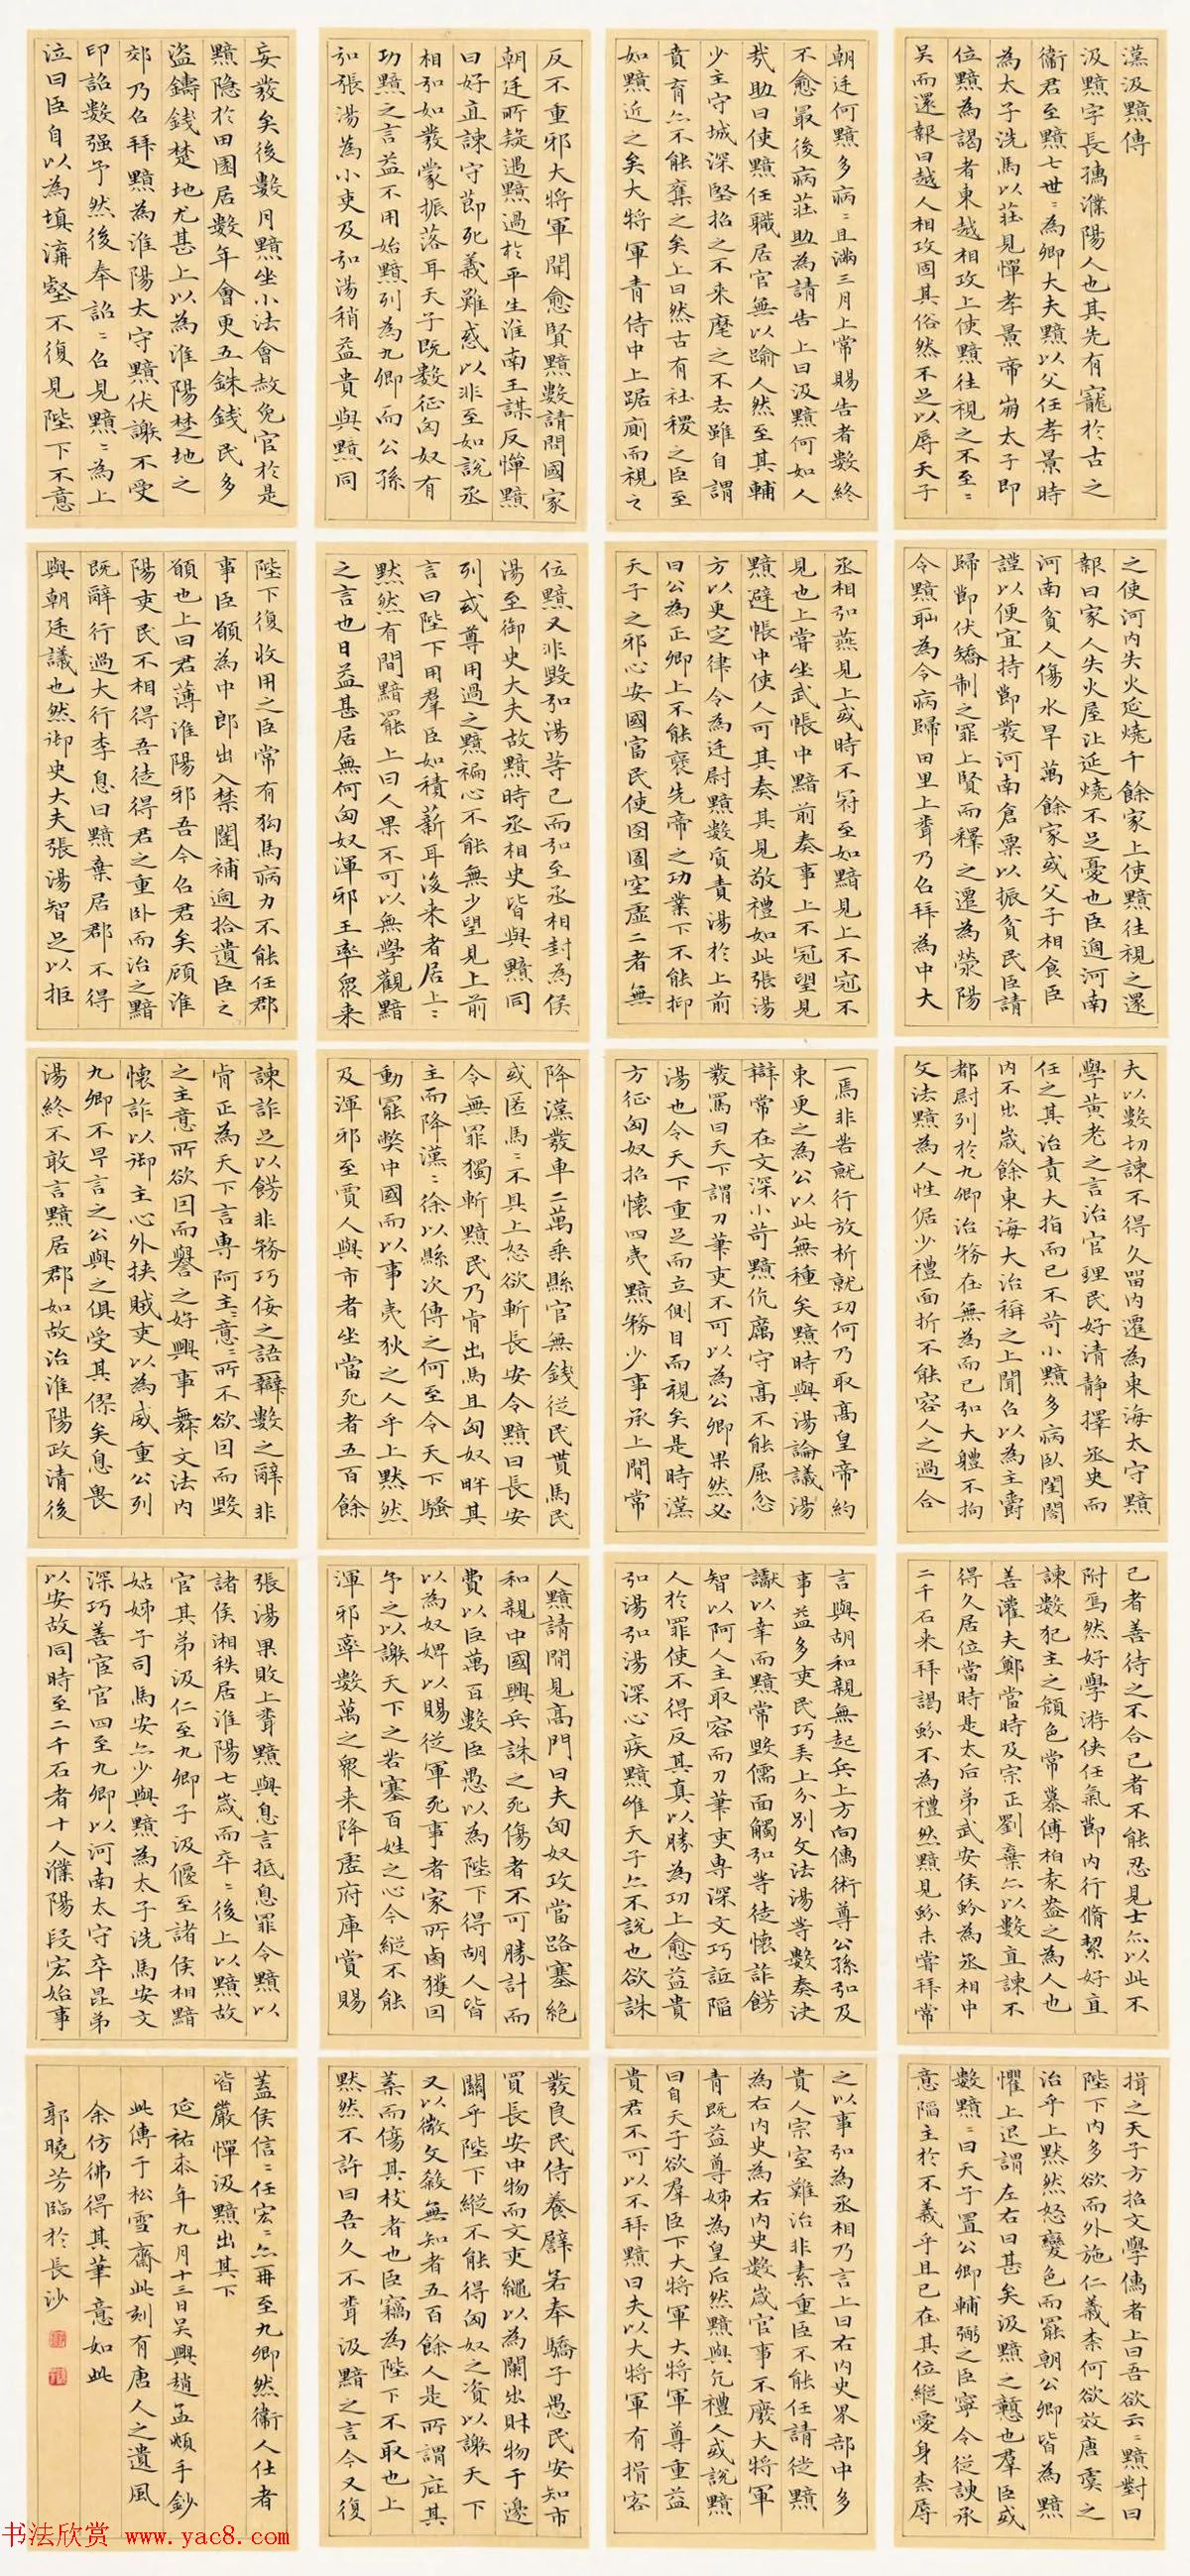 漢汲黯傳
汲黯字長孺濮陽人也其先有寵於古之
衞君至黯七世〻為卿大夫黯以父任孝景時
為太子洗馬以莊見憚孝景帝崩太子即
位黯為謁者東越相攻上使黯往視之不至〻
吴而還報曰越人相攻固其俗然不足以辱天子
之使河内失火延燒千餘家上使黯往視之還
報曰家人失火屋比延燒不足憂也臣過河南
河南貧人傷水旱萬餘家或父子相食臣
謹以便宜持節發河南倉粟以振貧民臣請
歸節伏矯制之罪上賢而釋之遷為滎陽
令黯恥為令病歸田里上聞乃召拜為中大
夫以數切諫不得久留内遷為東海太守黯
學黃老之言治官理民好清靜擇丞史而
任之其治責大指而已不苛小黯多病臥閨閤
内不出歲餘東海大治稱之上聞召以為主爵
都尉列於九卿治務在無為而已弘大體不拘
文法黯為人性倨少禮面折不能容人之過合
己者善待之不合己者不能忍見士亦以此不
附焉然好學游俠任氣節内行脩絜好直
諫數犯主之顏色常慕傅柏袁盎之為人也
善灌夫鄭當時及宗正劉棄亦以數直諫不
得久居位當時是太后弟武安侯蚡為丞相中
二千石来拜謁蚡不為禮然黯見蚡未嘗拜常
揖之天子方招文學儒者上曰吾欲云〻黯對曰
陛下内多欲而外施仁義柰何欲效唐虞之
治乎上黙然怒變色而罷朝公卿皆為黯
懼上退謂左右曰甚矣汲黯之戇也羣臣或
數黯〻曰天子置公卿輔弼之臣寧令從諛承
意陷主於不義乎且已在其位縱愛身柰辱
朝廷何黯多病〻且滿三月上常賜告者數終
不愈最後病莊助為請告上曰汲黯何如人
哉助曰使黯任職居官無以踰人然至其輔
少主守城深堅招之不来麾之不去雖自謂
賁育亦不能奪之矣上曰然古有社稷之臣至
如黯近之矣大將軍青侍中上踞廁而視之
丞相弘燕見上或時不冠至如黯見上不冠不
見也上嘗坐武帳中黯前奏事上不冠望見
黯避帳中使人可其奏其見敬禮如此張湯
方以更定律令為廷尉黯數質責湯於上前
曰公為正卿上不能襃先帝之功業下不能抑
天子之邪心安國富民使囹圄空虛二者無
一焉非苦就行放析就功何乃取高皇帝約
束更之為公以此無種矣黯時與湯論議湯
辯常在文深小苛黯伉厲守高不能屈忿
發罵曰天下謂刀筆吏不可以為公卿果然必
湯也令天下重足而立側目而視矣是時漢
方征匈奴招懷四夷黯務少事承上閒常
言與胡和親無起兵上方向儒術尊公孫弘及
事益多吏民巧弄上分別文法湯等數奏決
讞以幸而黯常毀儒面觸弘等徒懷詐飾
智以阿人主取容而刀筆吏專深文巧詆陷
人於罪使不得反其真以勝為功上愈益貴
弘湯弘湯深心疾黯雖天子亦不說也欲誅
之以事弘為丞相乃言上曰右内史界部中多
貴人宗室難治非素重臣不能任請徙黯
為右内史為右内史數歲官事不廢大將軍
青既益尊姊為皇后然黯與亢禮人或說黯
曰自天子欲羣臣下大將軍大將軍尊重益
貴君不可以不拜黯曰夫以大將軍有揖客
反不重邪大將軍聞愈賢黯數請問國家
朝廷所疑遇黯過於平生淮南王謀反憚黯
曰好直諫守節死義難惑以非至如說丞
相弘如發蒙振落耳天子既數征匈奴有
功黯之言益不用始黯列為九卿而公孫
弘張湯為小吏及弘湯稍益貴與黯同
位黯又非毀弘湯等已而弘至丞相封為侯
湯至御史大夫故黯時丞相史皆與黯同
列或尊用過之黯褊心不能無少望見上前
言曰陛下用羣臣如積薪耳後来者居上〻
黙然有間黯罷上曰人果不可以無學觀黯
之言也日益甚居無何匈奴渾邪王率衆来
降漢發車二萬乘縣官無錢從民貰馬民
或匿馬〻不具上怒欲斬長安令黯曰長安
令無罪獨斬黯民乃肯出馬且匈奴畔其
主而降漢〻徐以縣次傳之何至令天下騷
動罷弊中國而以事夷狄之人乎上黙然
及渾邪至賈人與市者坐當死者五百餘
人黯請閒見高門曰夫匈奴攻當路塞絕
和親中國興兵誅之死傷者不可勝計而
費以臣萬百數臣愚以為陛下得胡人皆
以為奴婢以賜從軍死事者家所鹵獲因
予之以謝天下之苦塞百姓之心今縱不能
渾邪率數萬之衆来降虛府庫賞賜
發良民侍養譬若奉驕子愚民安知市
買長安中物而文吏繩以為闌出財物于邊
關乎陛下縱不能得匈奴之資以謝天下
又以微文殺無知者五百餘人是所謂庇其
葉而傷其枝者也臣竊為陛下不取也上
黙然不許曰吾久不聞汲黯之言今又復
妄發矣後數月黯坐小法會赦免官於是
黯隐於田園居數年會更五銖錢民多
盜鑄錢楚地尤甚上以為淮陽楚地之
郊乃召拜黯為淮陽太守黯伏謝不受
印詔數强予然後奉詔〻召見黯〻為上
泣曰臣自以為填溝壑不復見陛下不意
陛下復收用之臣常有狗馬病力不能任郡
事臣願為中郎出入禁闥補過拾遺臣之
願也上曰君薄淮陽邪吾今召君矣顧淮
陽吏民不相得吾徒得君之重卧而治之黯
既辭行過大行李息曰黯棄居郡不得
與朝廷議也然御史大夫張湯智足以拒
諫詐足以飾非務巧佞之語辯數之辭非
肯正為天下言專阿主〻意〻所不欲因而毀
之主意所欲因而譽之好興事舞文法内
懷詐以御主心外挟賊吏以為威重公列
九卿不早言之公與之俱受其僇矣息畏
湯終不敢言黯居郡如故治淮陽政清後
張湯果敗上聞黯與息言抵息罪令黯以
諸侯湘秩居淮陽七歲而卒〻後上以黯故
官其弟汲仁至九卿子汲偃至諸侯相黯
姑姊子司馬安亦少與黯為太子洗馬安文
深巧善宦官四至九卿以河南太守卒昆弟
以安故同時至二千石者十人濮陽段宏始事
蓋侯信〻任宏〻亦再至九卿然衞人仕者
皆嚴憚汲黯出其下
延祐柒年九月十三日吴興趙孟頫手鈔
此傳于松雪齋此刻有唐人之遺風
余仿彿得其筆意如此
郭曉芳臨於長沙
书法欣赏 www.yac8.com